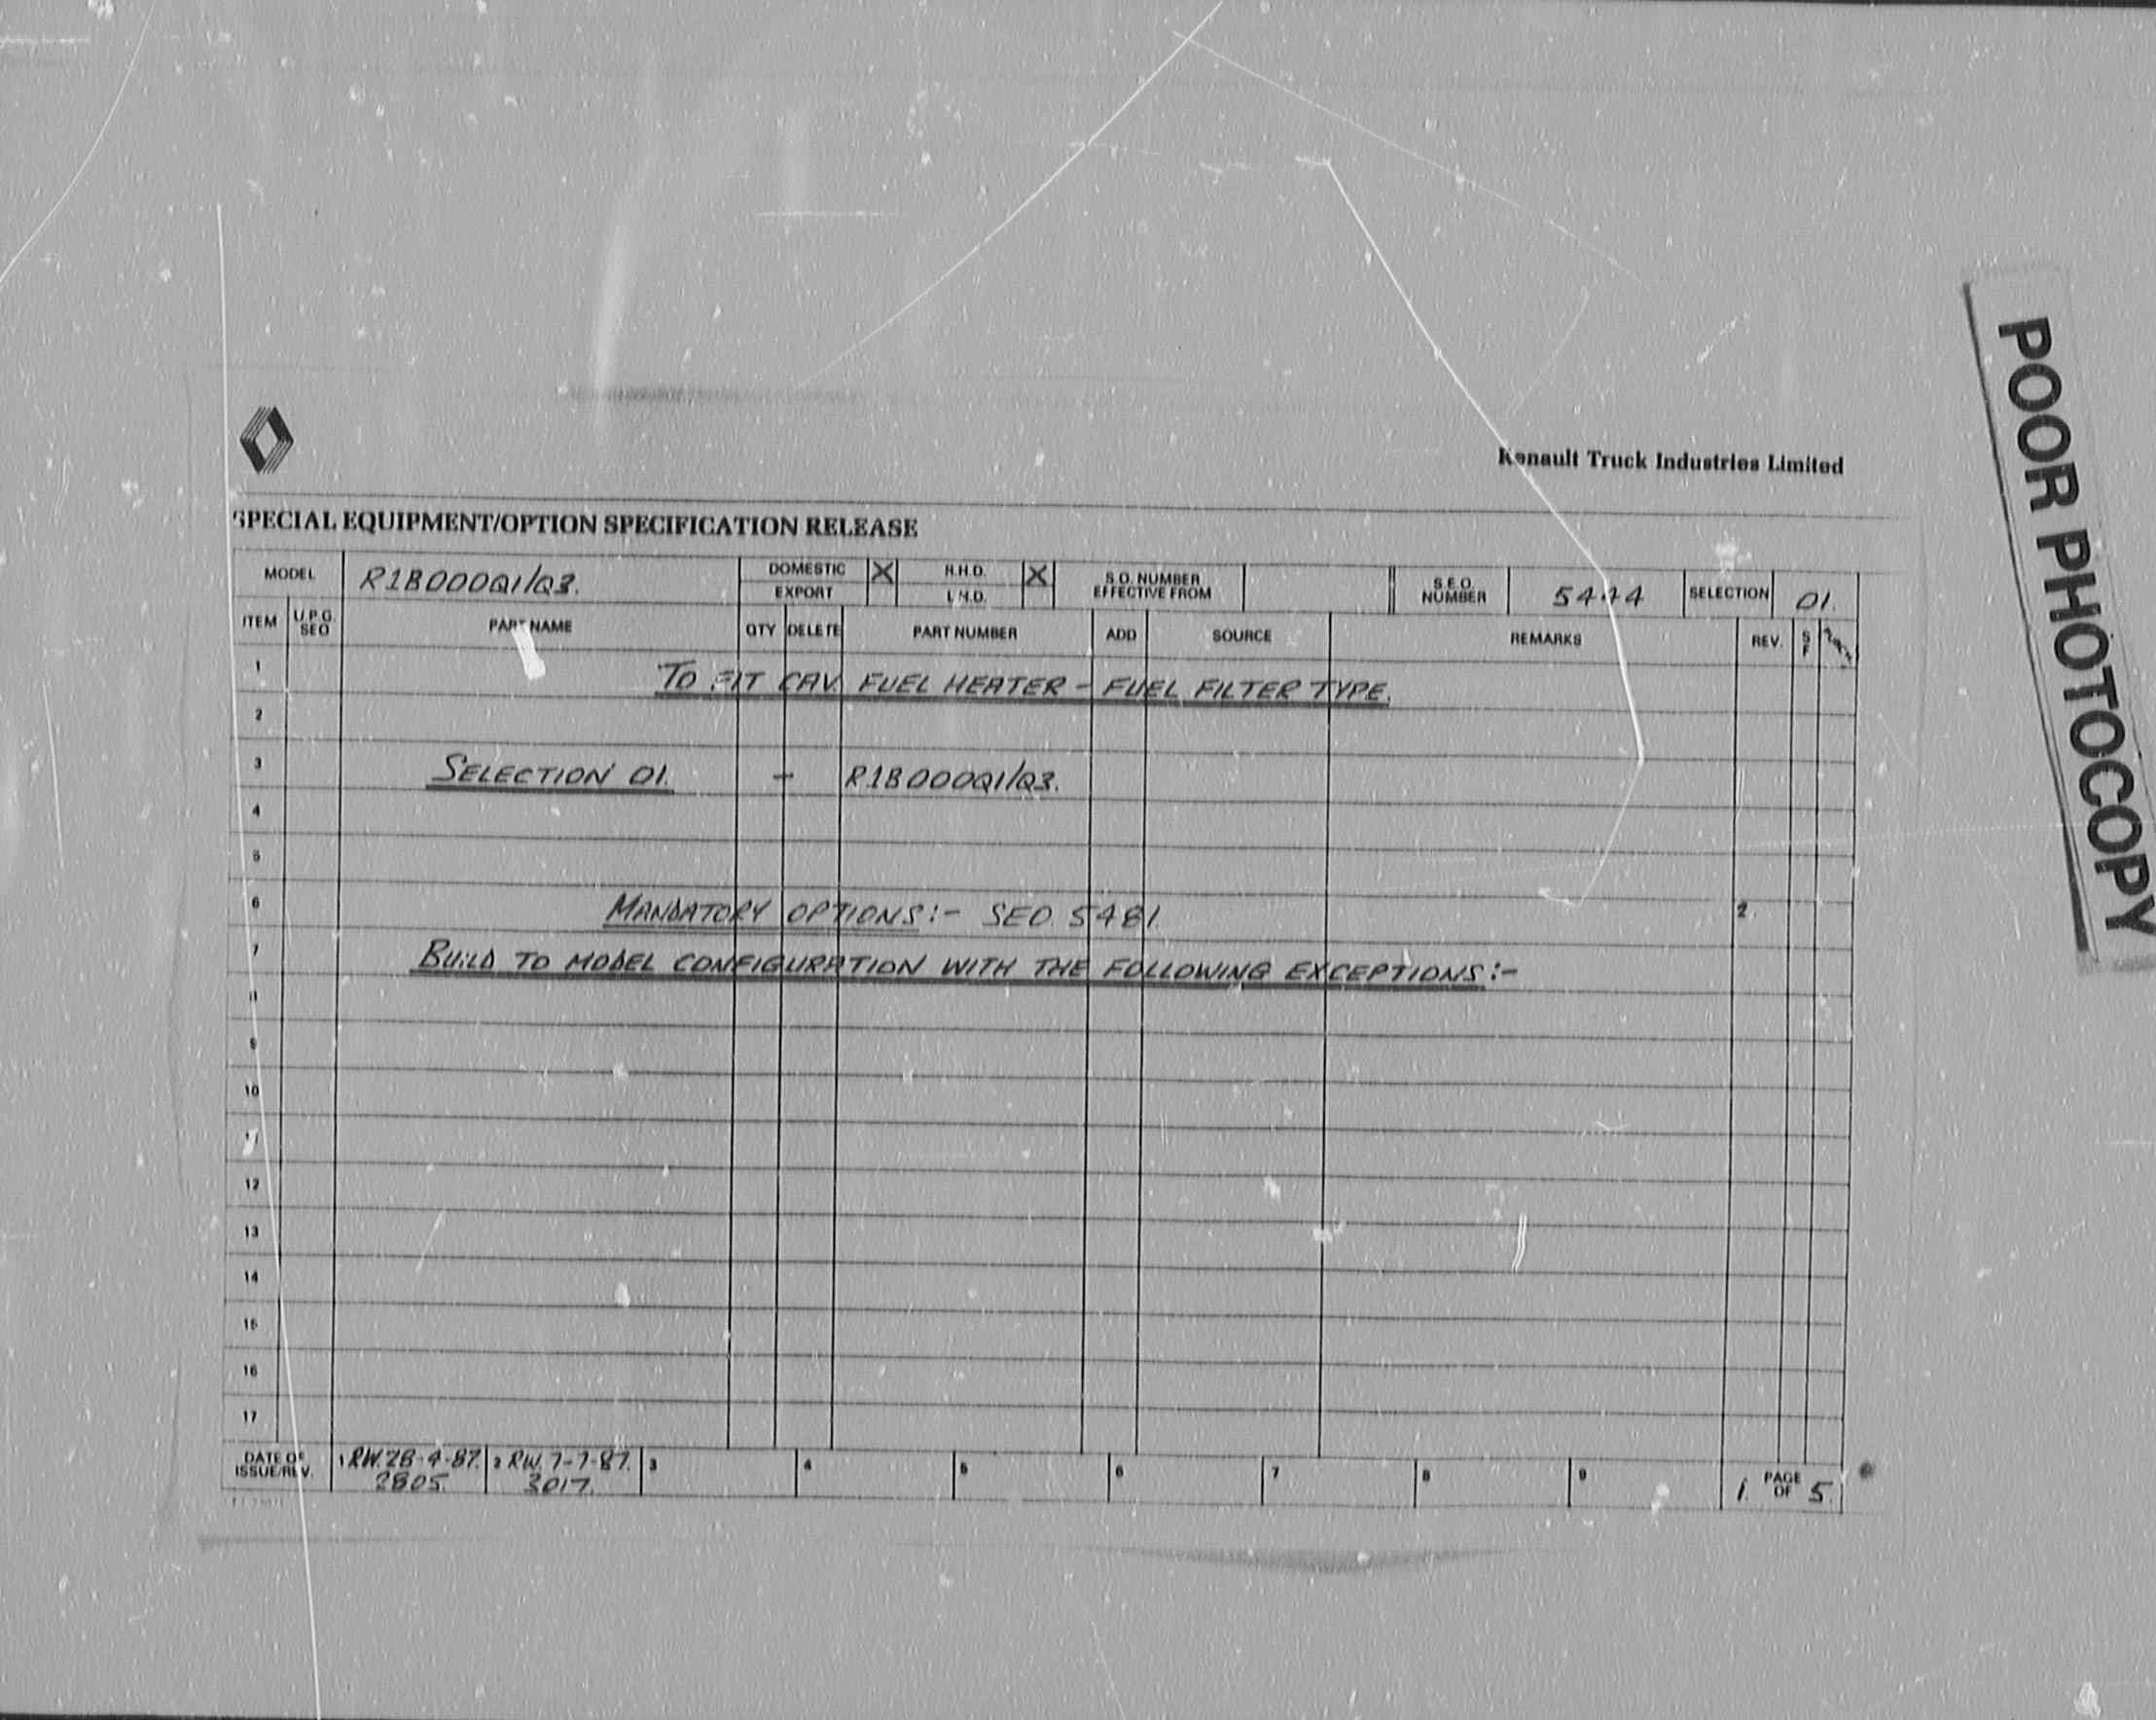 Renault Truck Industries Limited
SPECIAL EQUIPMENT/OPTION SPECIFICATION RELEASE
MODEL R1B000Q1/Q3. DOMESTIC X R.H.D. X S.O. NUMBER EFFECTIVE FROM S.E.O. NUMBER 5444 SELECTION 01.
EXPORT L.H.D.
ITEM U.P.G. SEO PART NAME QTY DELETE PART NUMBER ADD SOURCE REMARKS REV. S F
1 TO FIT CAV. FUEL HEATER - FUEL FILTER TYPE.
2
3 SELECTION 01. - R1B000Q1/Q3.
4
5
6 MANDATORY OPTIONS:- SEO. 5481. 2.
7 BUILD TO MODEL CONFIGURATION WITH THE FOLLOWING EXCEPTIONS:-
8
9
10
11
12
13
14
15
16
17
DATE OF ISSUE/REV. 1 RW. 28-4-87. 2 RW. 7-7-87. 3 4 5 6 7 8 9 1. PAGE OF 5.
2805. 3017.
POOR PHOTOCOPY